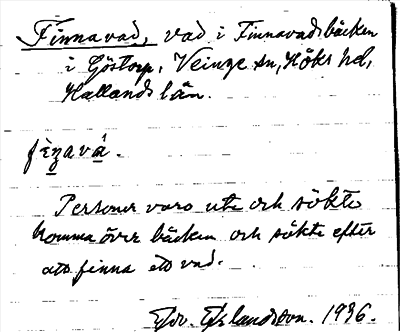 Finnavad, vad i Finnavadsbäcken
i Göstorp, Veinge sn, Höks hd,
Hallands län.
Personer varo ute och sökte
komma över bäcken och sökte efter
att finna ett vad.
1936.